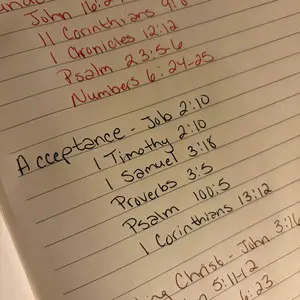 John 16:2
11 Corinthians 9:8
1 Chronicles 12:12
Psalm 23:5-6
Numbers 6:24-25
Acceptance - Job 2:10
1 Timothy 2:10
1 Samuel 3:18
Proverbs 3:5
Psalm 100:5
1 Corinthians 13:12
Christ - John 3:16
5:11-12
6:23